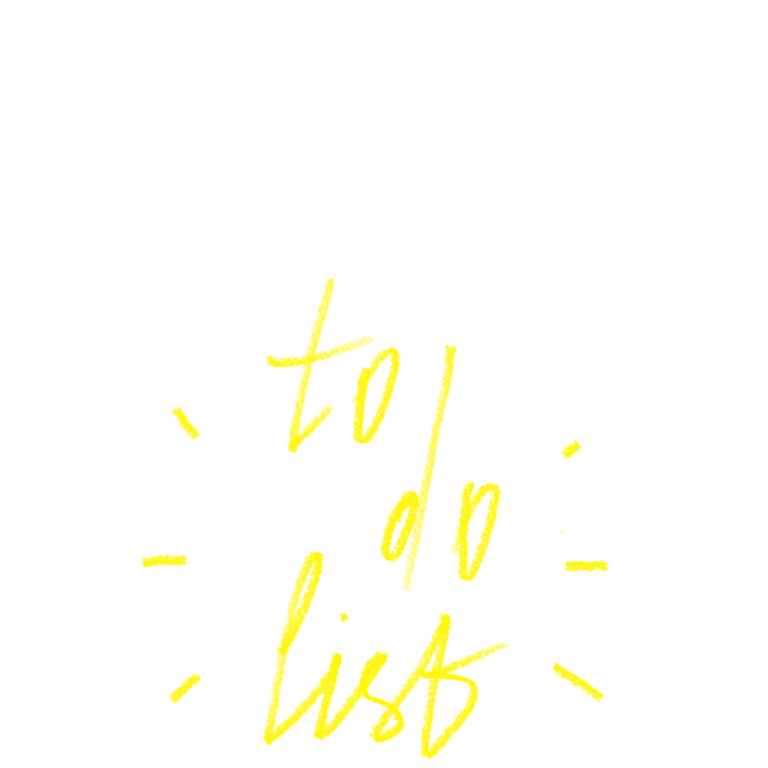 to
do
list